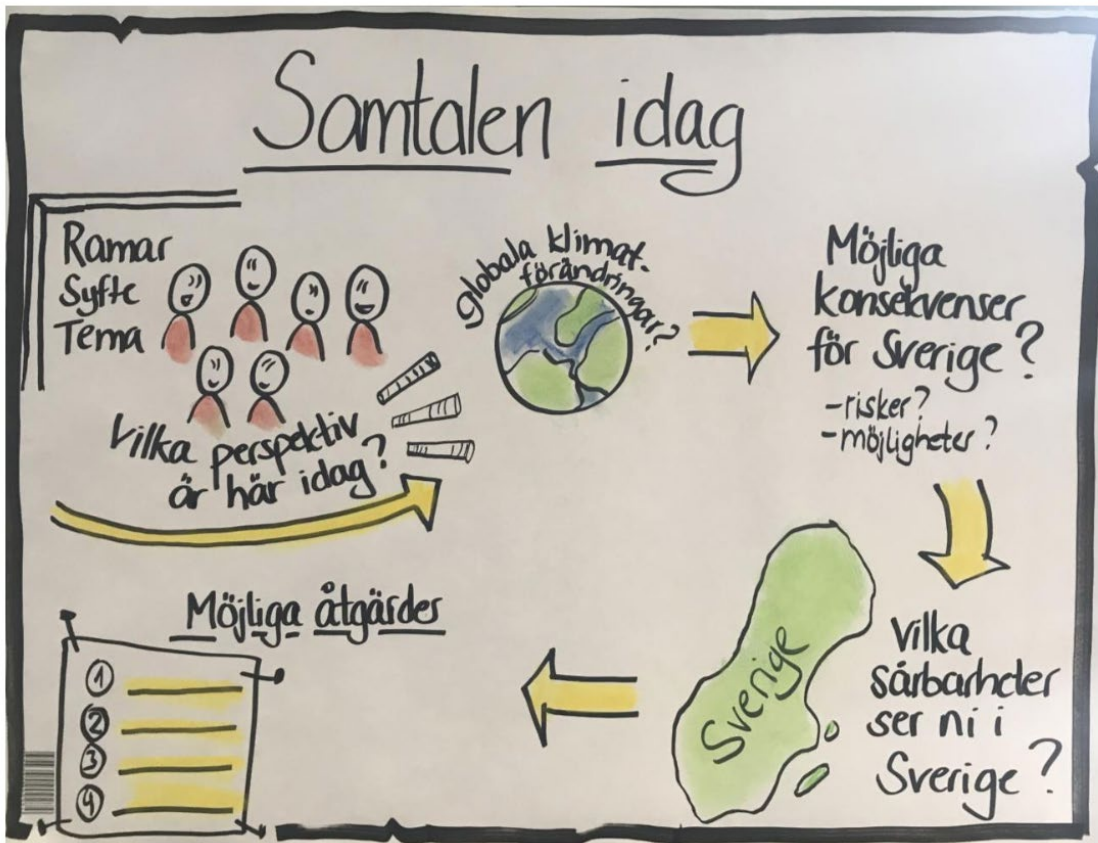 Samtalen idag
Ramar
Syfte
Tema
Vilka perspektiv
är här idag?
globala klimat-
förändringar?
Möjliga
konsekvenser
för Sverige?
-risker?
-möjligheter?
Vilka
sårbarheter
ser ni i
Sverige?
Sverige
Möjliga åtgärder
1
2
3
4